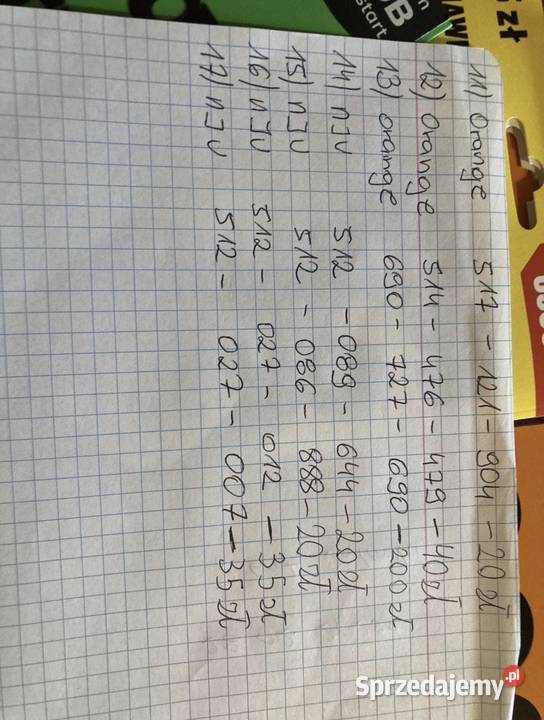 11) Orange 517 - 121 - 904 - 20 zł
12) orange 514 - 476 - 479 - 40 zł
13) orange 690 - 727 - 690 - 200 zł
14) nju 512 - 089 - 644 - 20 zł
15) nju 512 - 086 - 888 - 20 zł
16) nju 512 - 027 - 012 - 35 zł
17) nju 512 - 027 - 007 - 35 zł
start
zł
Sprzedajemy.pl